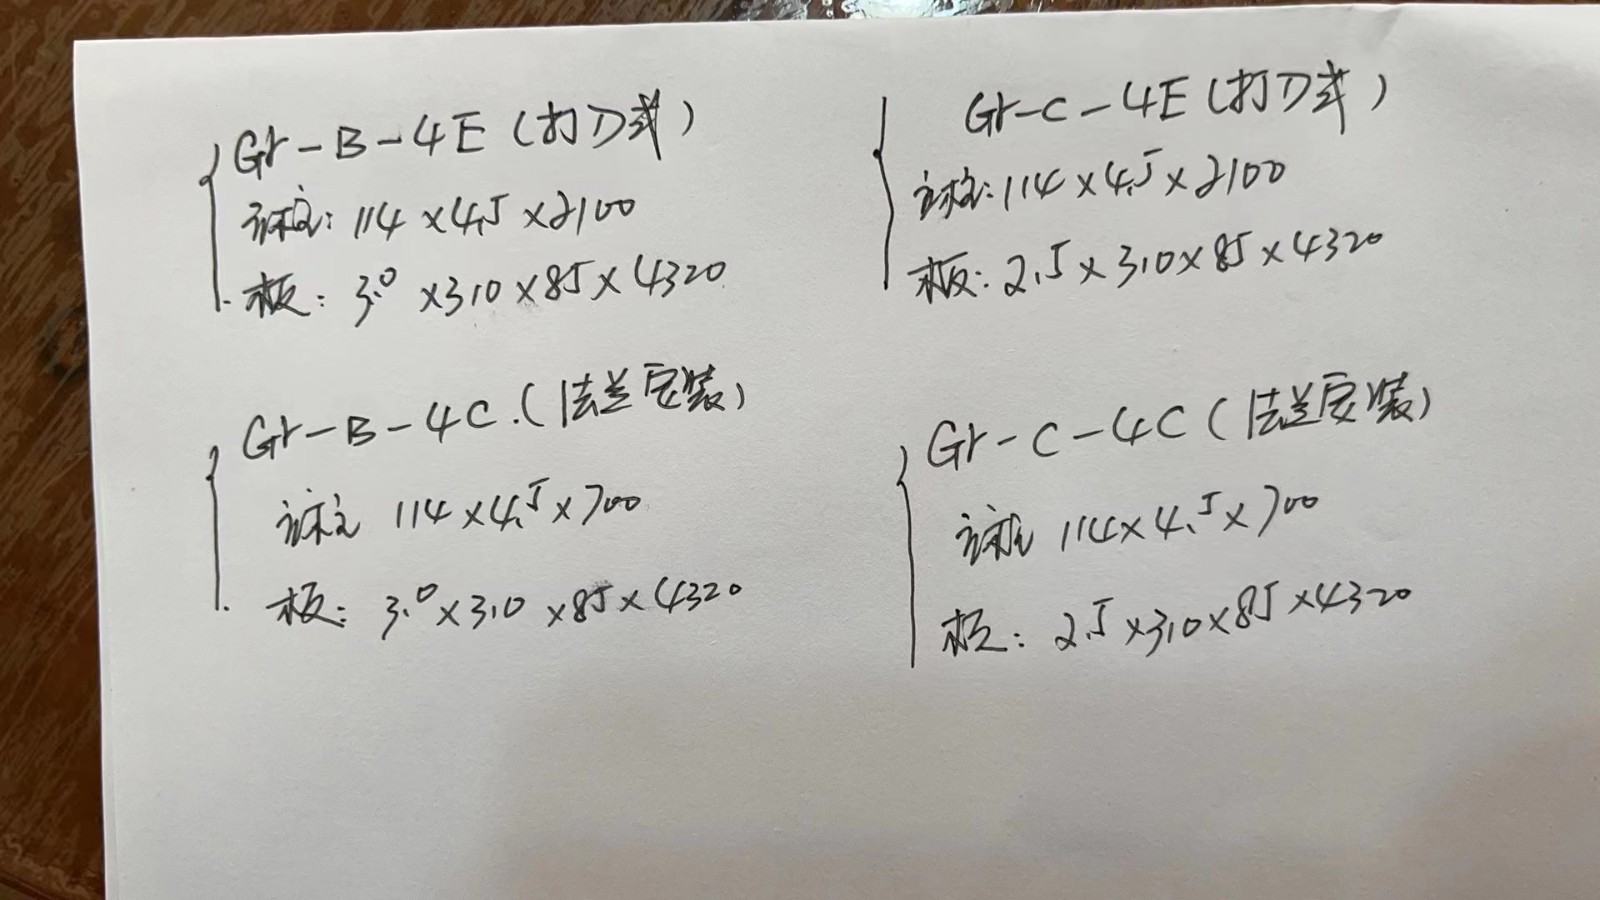 Gr-B-4E (打入式)
立柱: 114×4.5×2100
板: 3.0×310×85×4320
Gr-C-4E (打入式)
立柱: 114×4.5×2100
板: 2.5×310×85×4320
Gr-B-4C. (法兰安装)
立柱 114×4.5×700
板: 3.0×310×85×4320
Gr-C-4C (法兰安装)
立柱 114×4.5×700
板: 2.5×310×85×4320